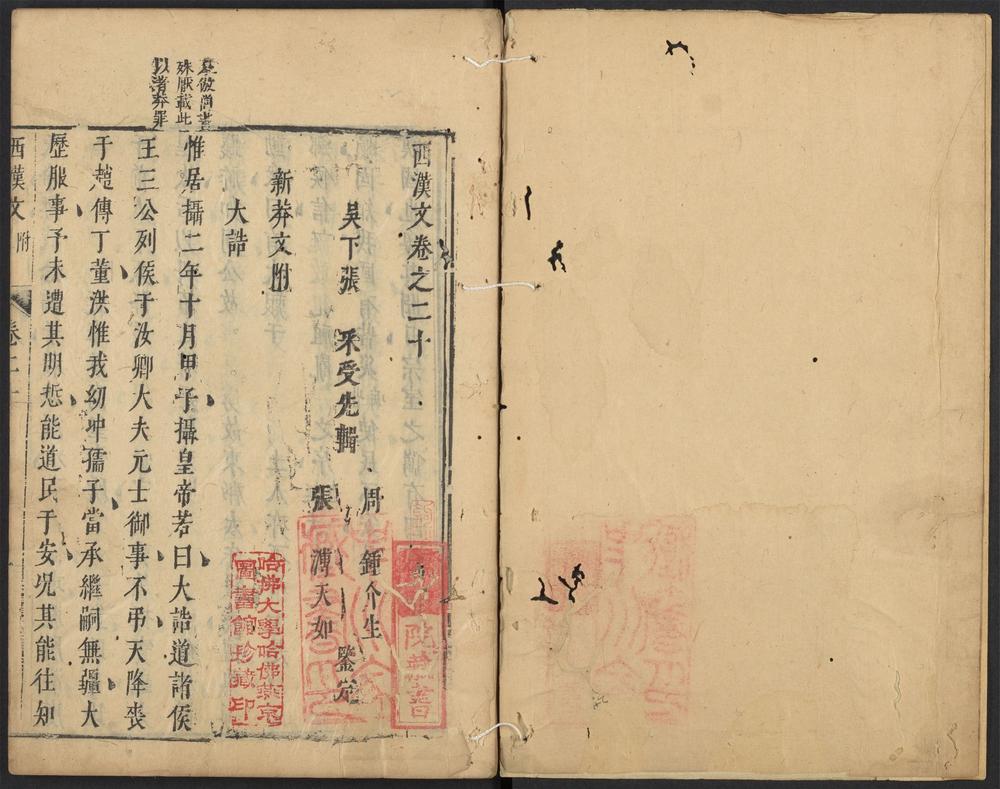 西漢文卷之二十
吳下張 采受先輯
周 鍾介生
張 溥天如
鑒定
新莽文附
大誥
莽倣尚書
殊厭載此
以著莽罪
惟居攝二年十月甲子攝皇帝若曰大誥道諸侯
王三公列侯于汝卿大夫元士御事不弔天降喪
于趙傅丁董洪惟我幼沖孺子當承繼嗣無疆大
歷服事予未遭其明悊能道民于安況其能往知
西漢文 附 卷二十
哈佛大學哈佛燕京
圖書館珍藏印